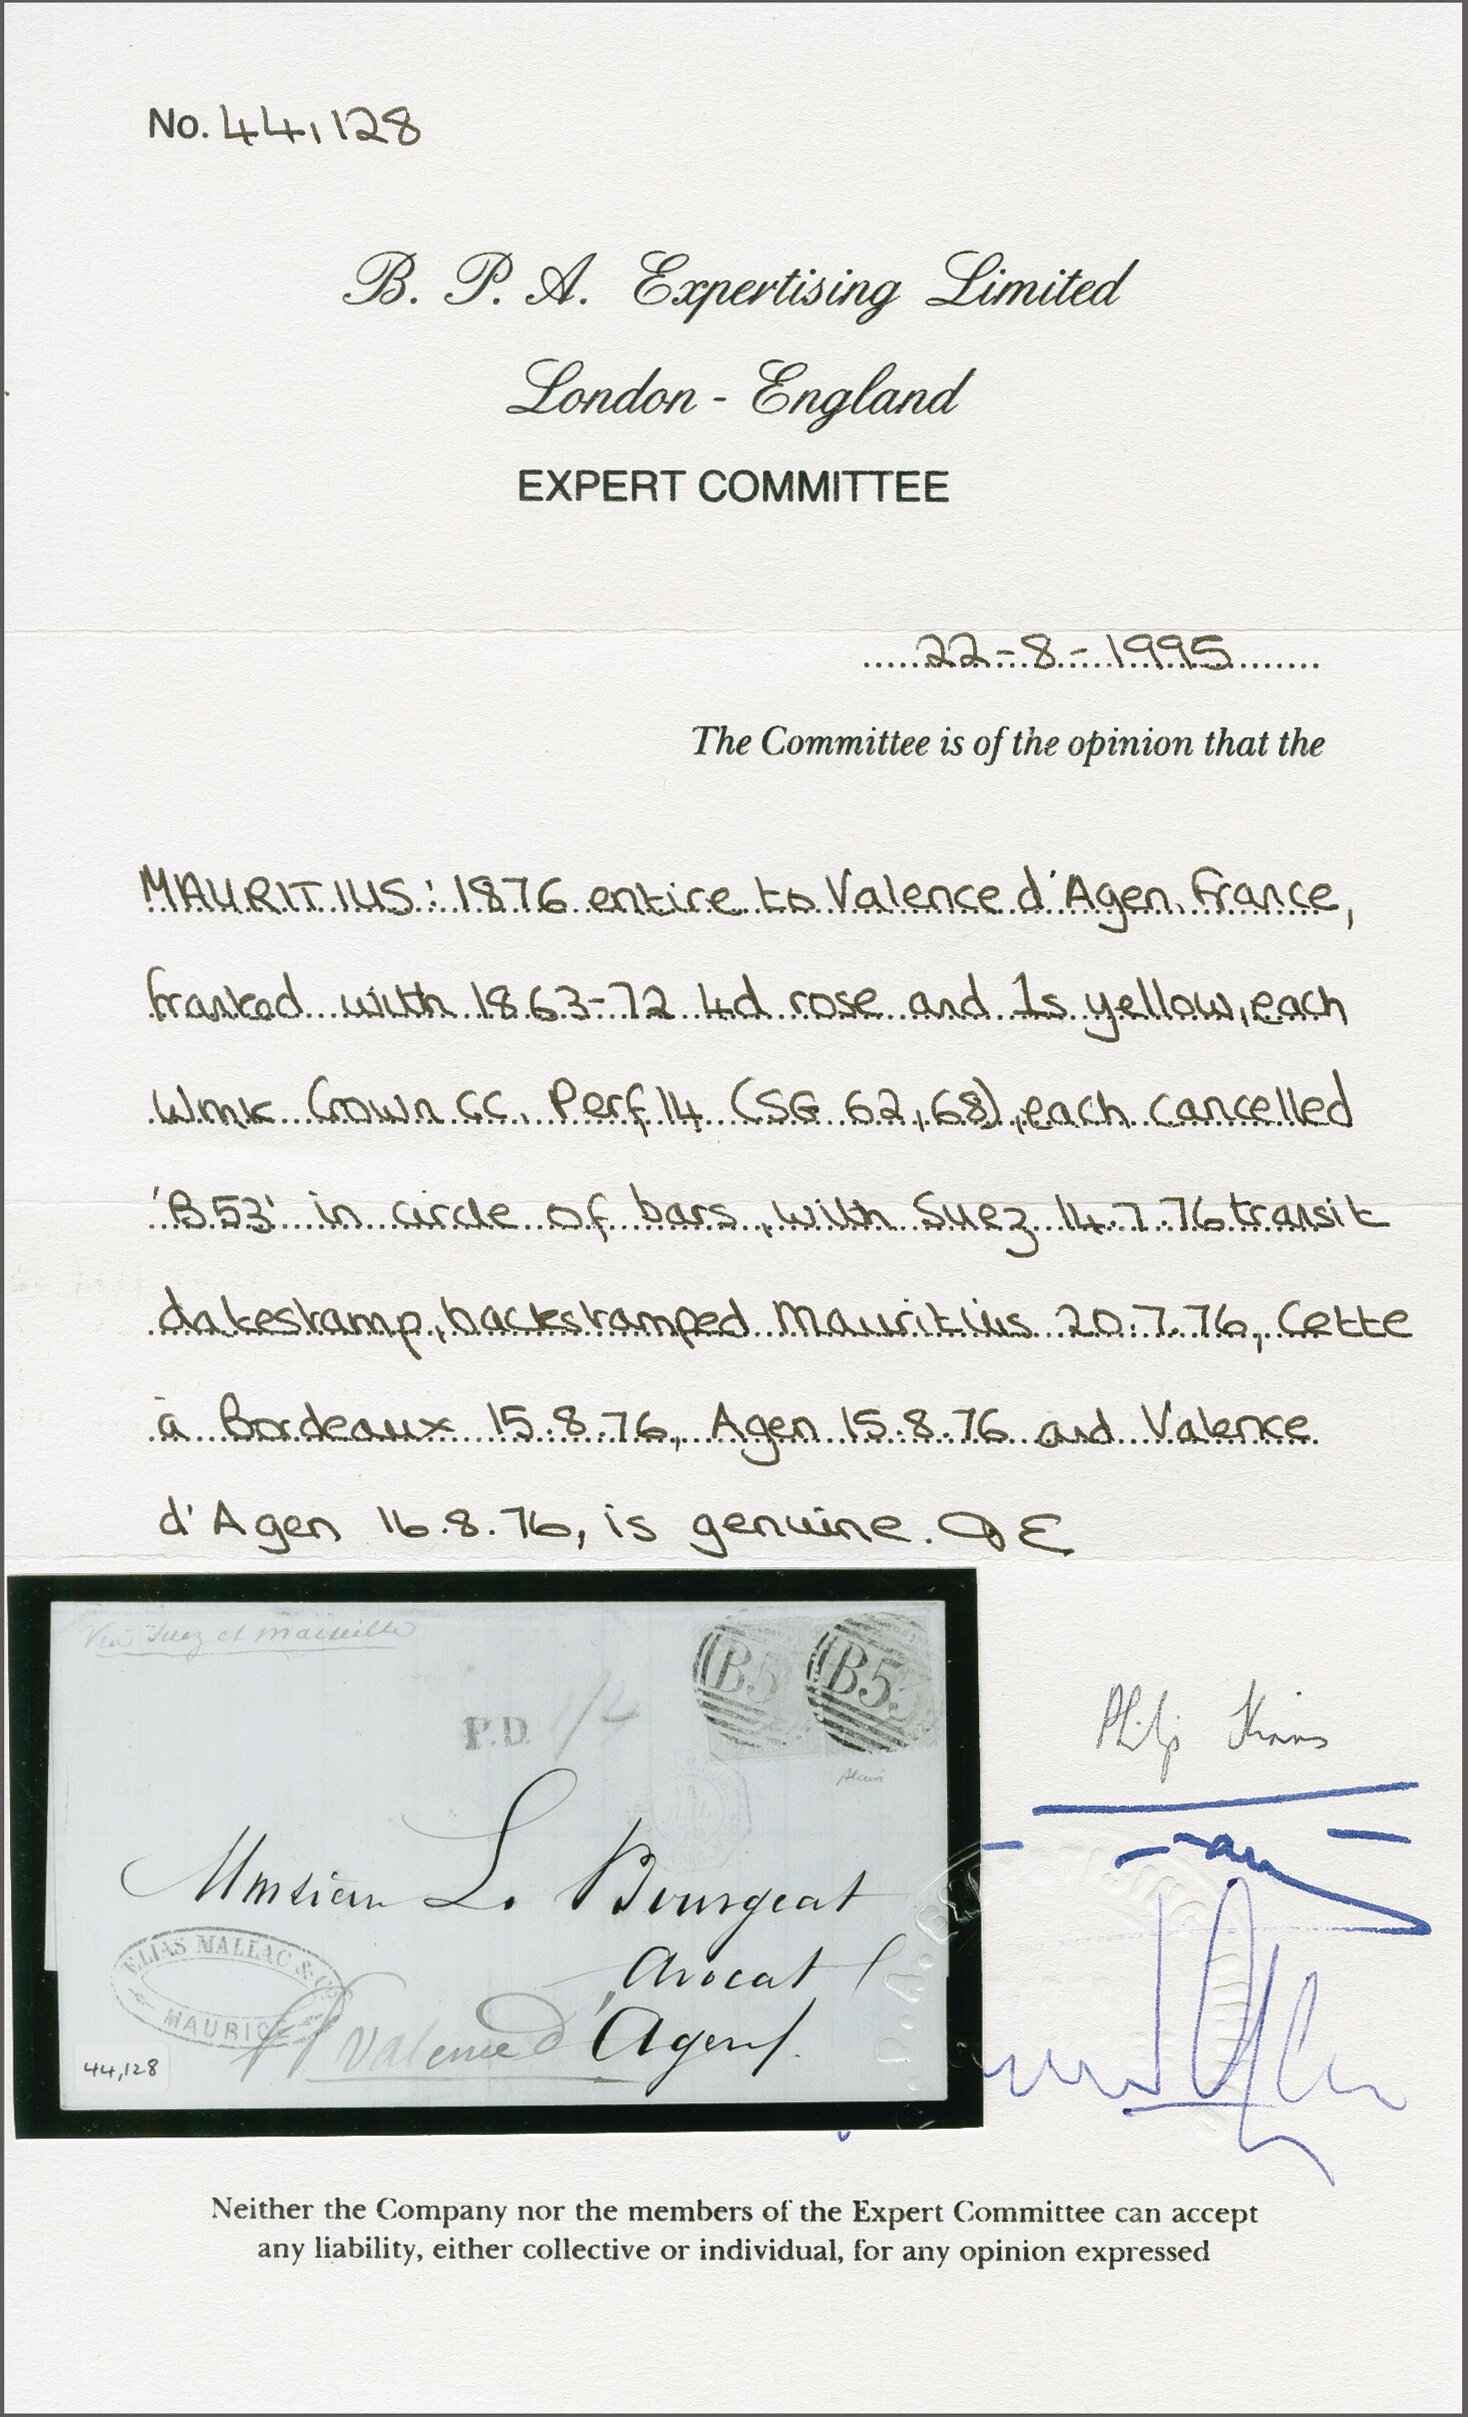 No. 44,128
B. P. A. Expertising Limited
London - England
EXPERT COMMITTEE
22-8-1995
The Committee is of the opinion that the
MAURITIUS: 1876 entire to Valence d'Agen, France,
franked with 1863-72 4d rose and 1s yellow, each
Wmk Crown CC, Perf 14 (SG 62, 68), each cancelled
'B53' in circle of bars, with Suez 14.7.76 transit
datestamp, backstamped Mauritius 20.7.76, Cette
a Bordeaux 15.8.76, Agen 15.8.76 and Valence
d'Agen 16.8.76, is genuine.
Via Suez et Marseille
B5 B53
P.D. 1/4
Monsieur L. Bourgeat
Avocat
ELIAS MALLAC & Co
MAURICE
Valence d'Agen
44,128
Philip
Neither the Company nor the members of the Expert Committee can accept
any liability, either collective or individual, for any opinion expressed